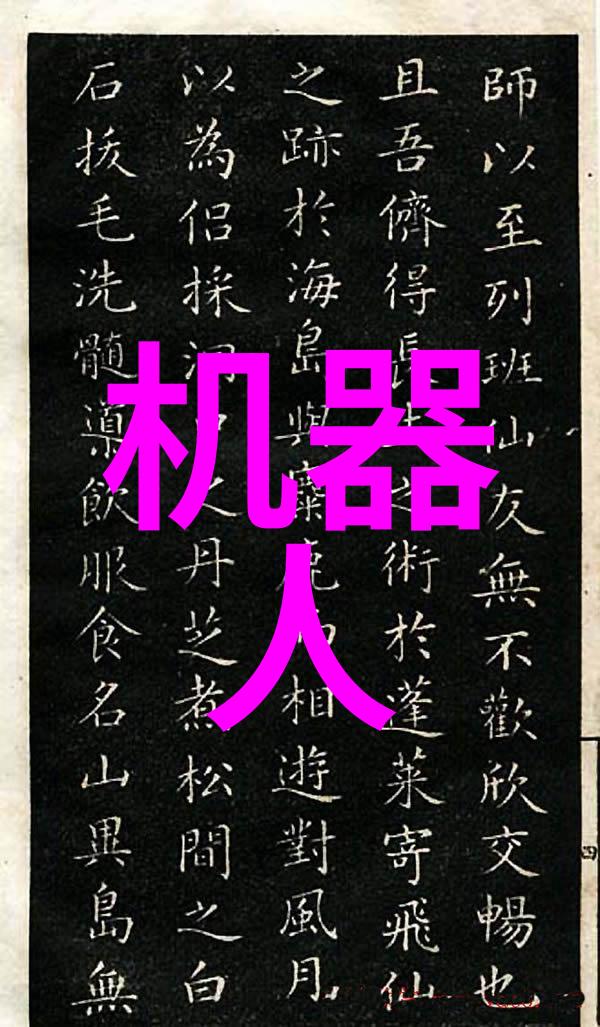 師以至列班仙友無不歡欣交暢也
且吾儕得長生之術於蓬萊寄飛仙
之跡於海島與麋鹿而相遊對風月
以為侶採洞口之丹芝煮松間之白
石拔毛洗髓導飲服食名山異島無
机器
人